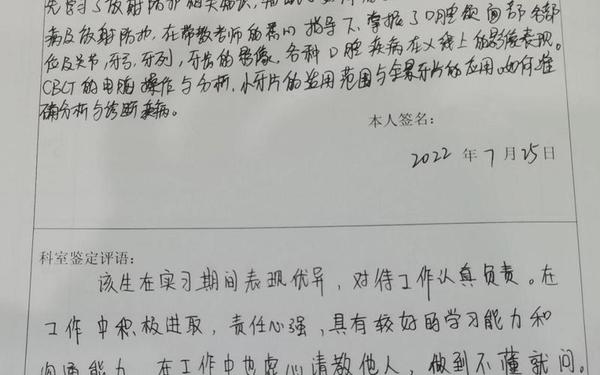 先学习了放射防护相关知识,
病及放射防护,在带教老师的悉心指导下,掌握了口腔颌面部各部
位及关节,牙弓,牙列,牙齿的影像,各种口腔疾病在X线上的影像表现。
CBCT的电脑操作与分析,小牙片的适用范围与全景牙片的应用。如何准
确分析与诊断疾病。
本人签名:
2022 年 7 月 25 日
科室鉴定评语:
该生在实习期间表现优异,对待工作认真负责。在
工作中积极进取,责任心强,具有较好的学习能力和
沟通能力。在工作中也虚心请教他人,做到不懂就问。